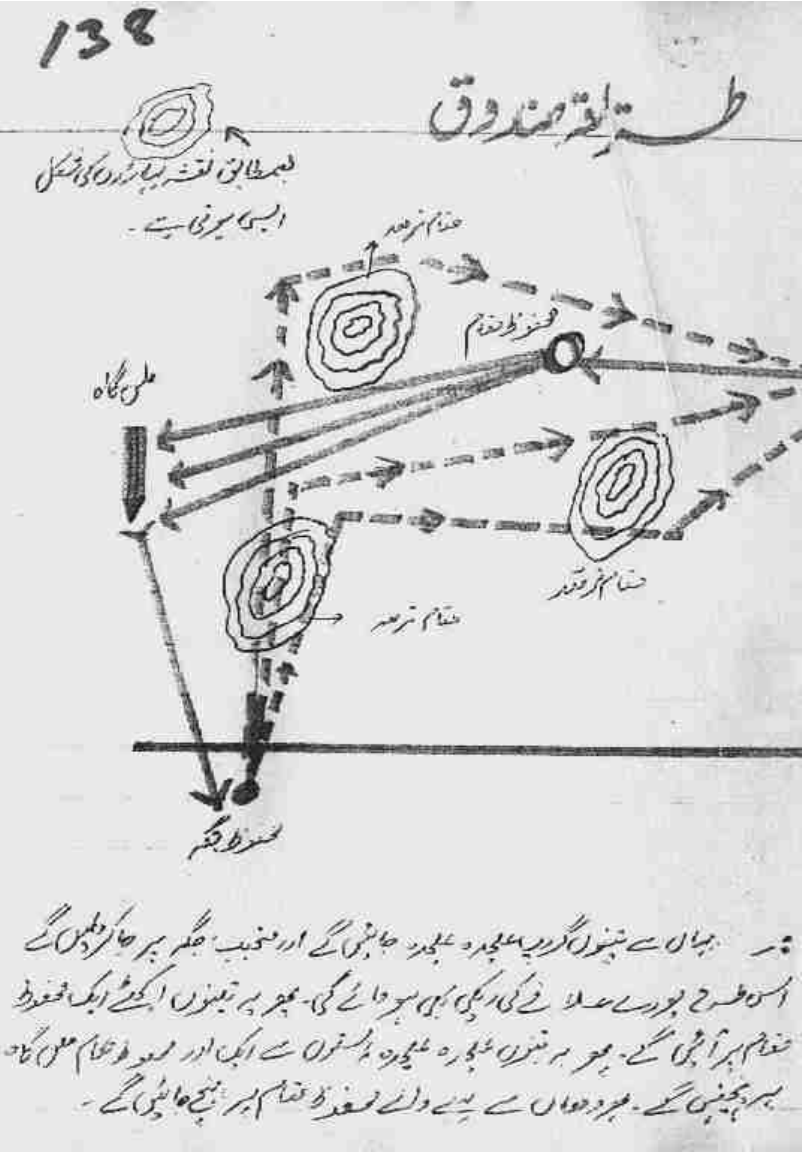 138
طریقہ صندوق
بمطابق نقشہ پہاڑوں کی شکل
ایسی ہوتی ہے۔
مقام ترصد
محفوظ مقام
ملن گاہ
مقام ترصد
مقام
محفوظ جگہ
یہاں سے تینوں گروپ علیحدہ علیحدہ جائیں گے اور منتخب جگہ پر جا کر ملیں گے
اس طرح پورے علاقے کی ریکی بھی ہو جائے گی۔ پھر یہ تینوں اکٹھے ایک محفوظ
مقام پر آئیں گے۔ پھر یہ تینوں علیحدہ علیحدہ راستوں سے ایک اور محفوظ مقام ملن گاہ
پر پہنچیں گے۔ پھر وہاں سے پہلے والے محفوظ مقام پر پہنچ جائیں گے۔